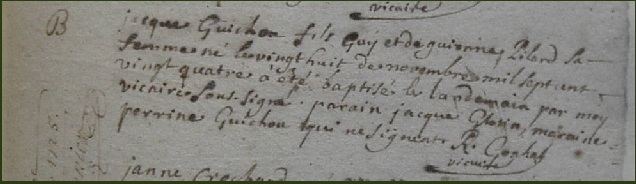 vicaire
B
jacque Guichou fils Guÿ et de guionne Pilard sa
femme né le vingt huit de novembre mil sept cent
vingt quatre a été baptisé le landemain par moy
vicaire sous signé. parain jacque maraine
perrine Guichou qui ne signent R.
vicaire
janne